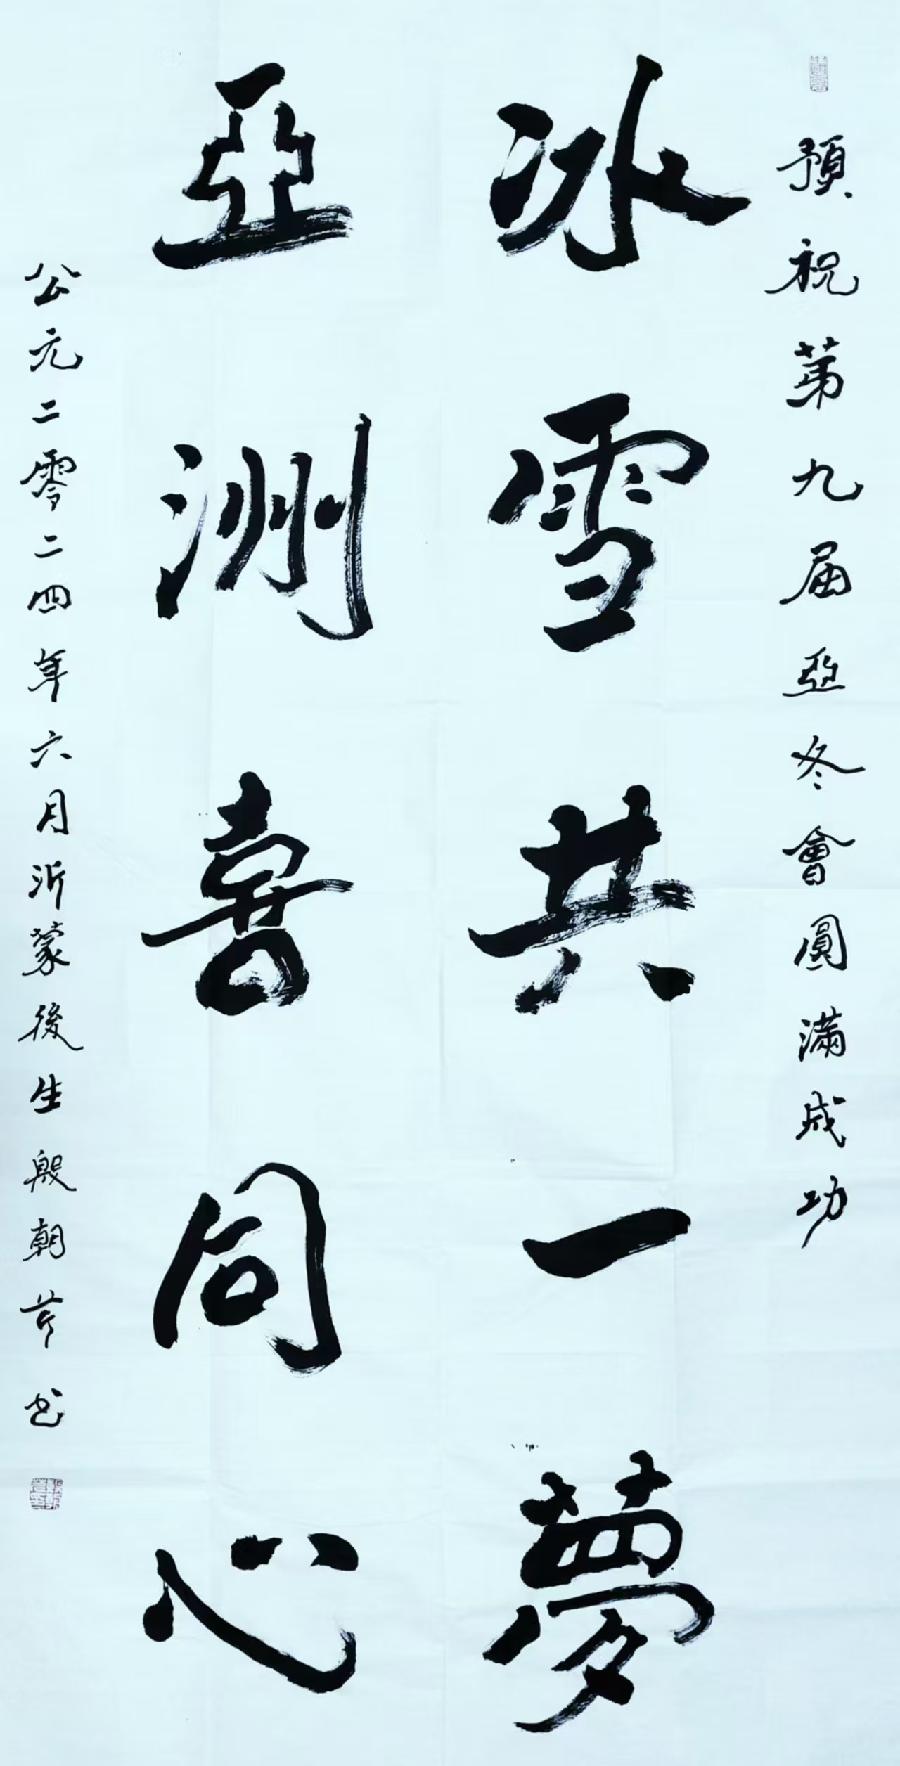 預祝第九屆亞冬會圓滿成功
冰雪共一夢
亞洲喜同心
公元二零二四年六月沂蒙後生殷朝芹书